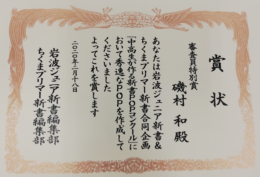 賞状
審査員特別賞
磯村 和殿
あなたは岩波ジュニア新書&
ちくまプリマー新書合同企画
「中高生が作る新書POPコンクール」に
おいて秀逸なPOPを作成して
くださいました
よってこれを賞します
二〇二〇年一月十八日
岩波ジュニア新書編集部
ちくまプリマー新書編集部